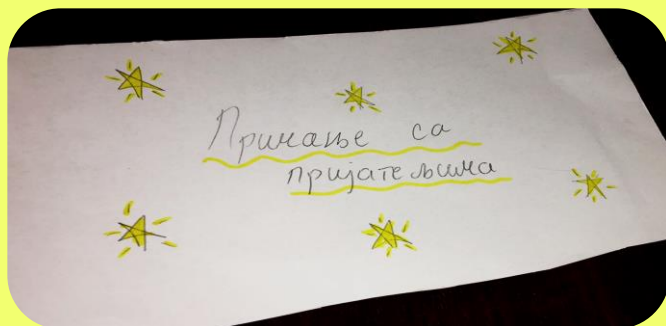 Причање са
пријатељима